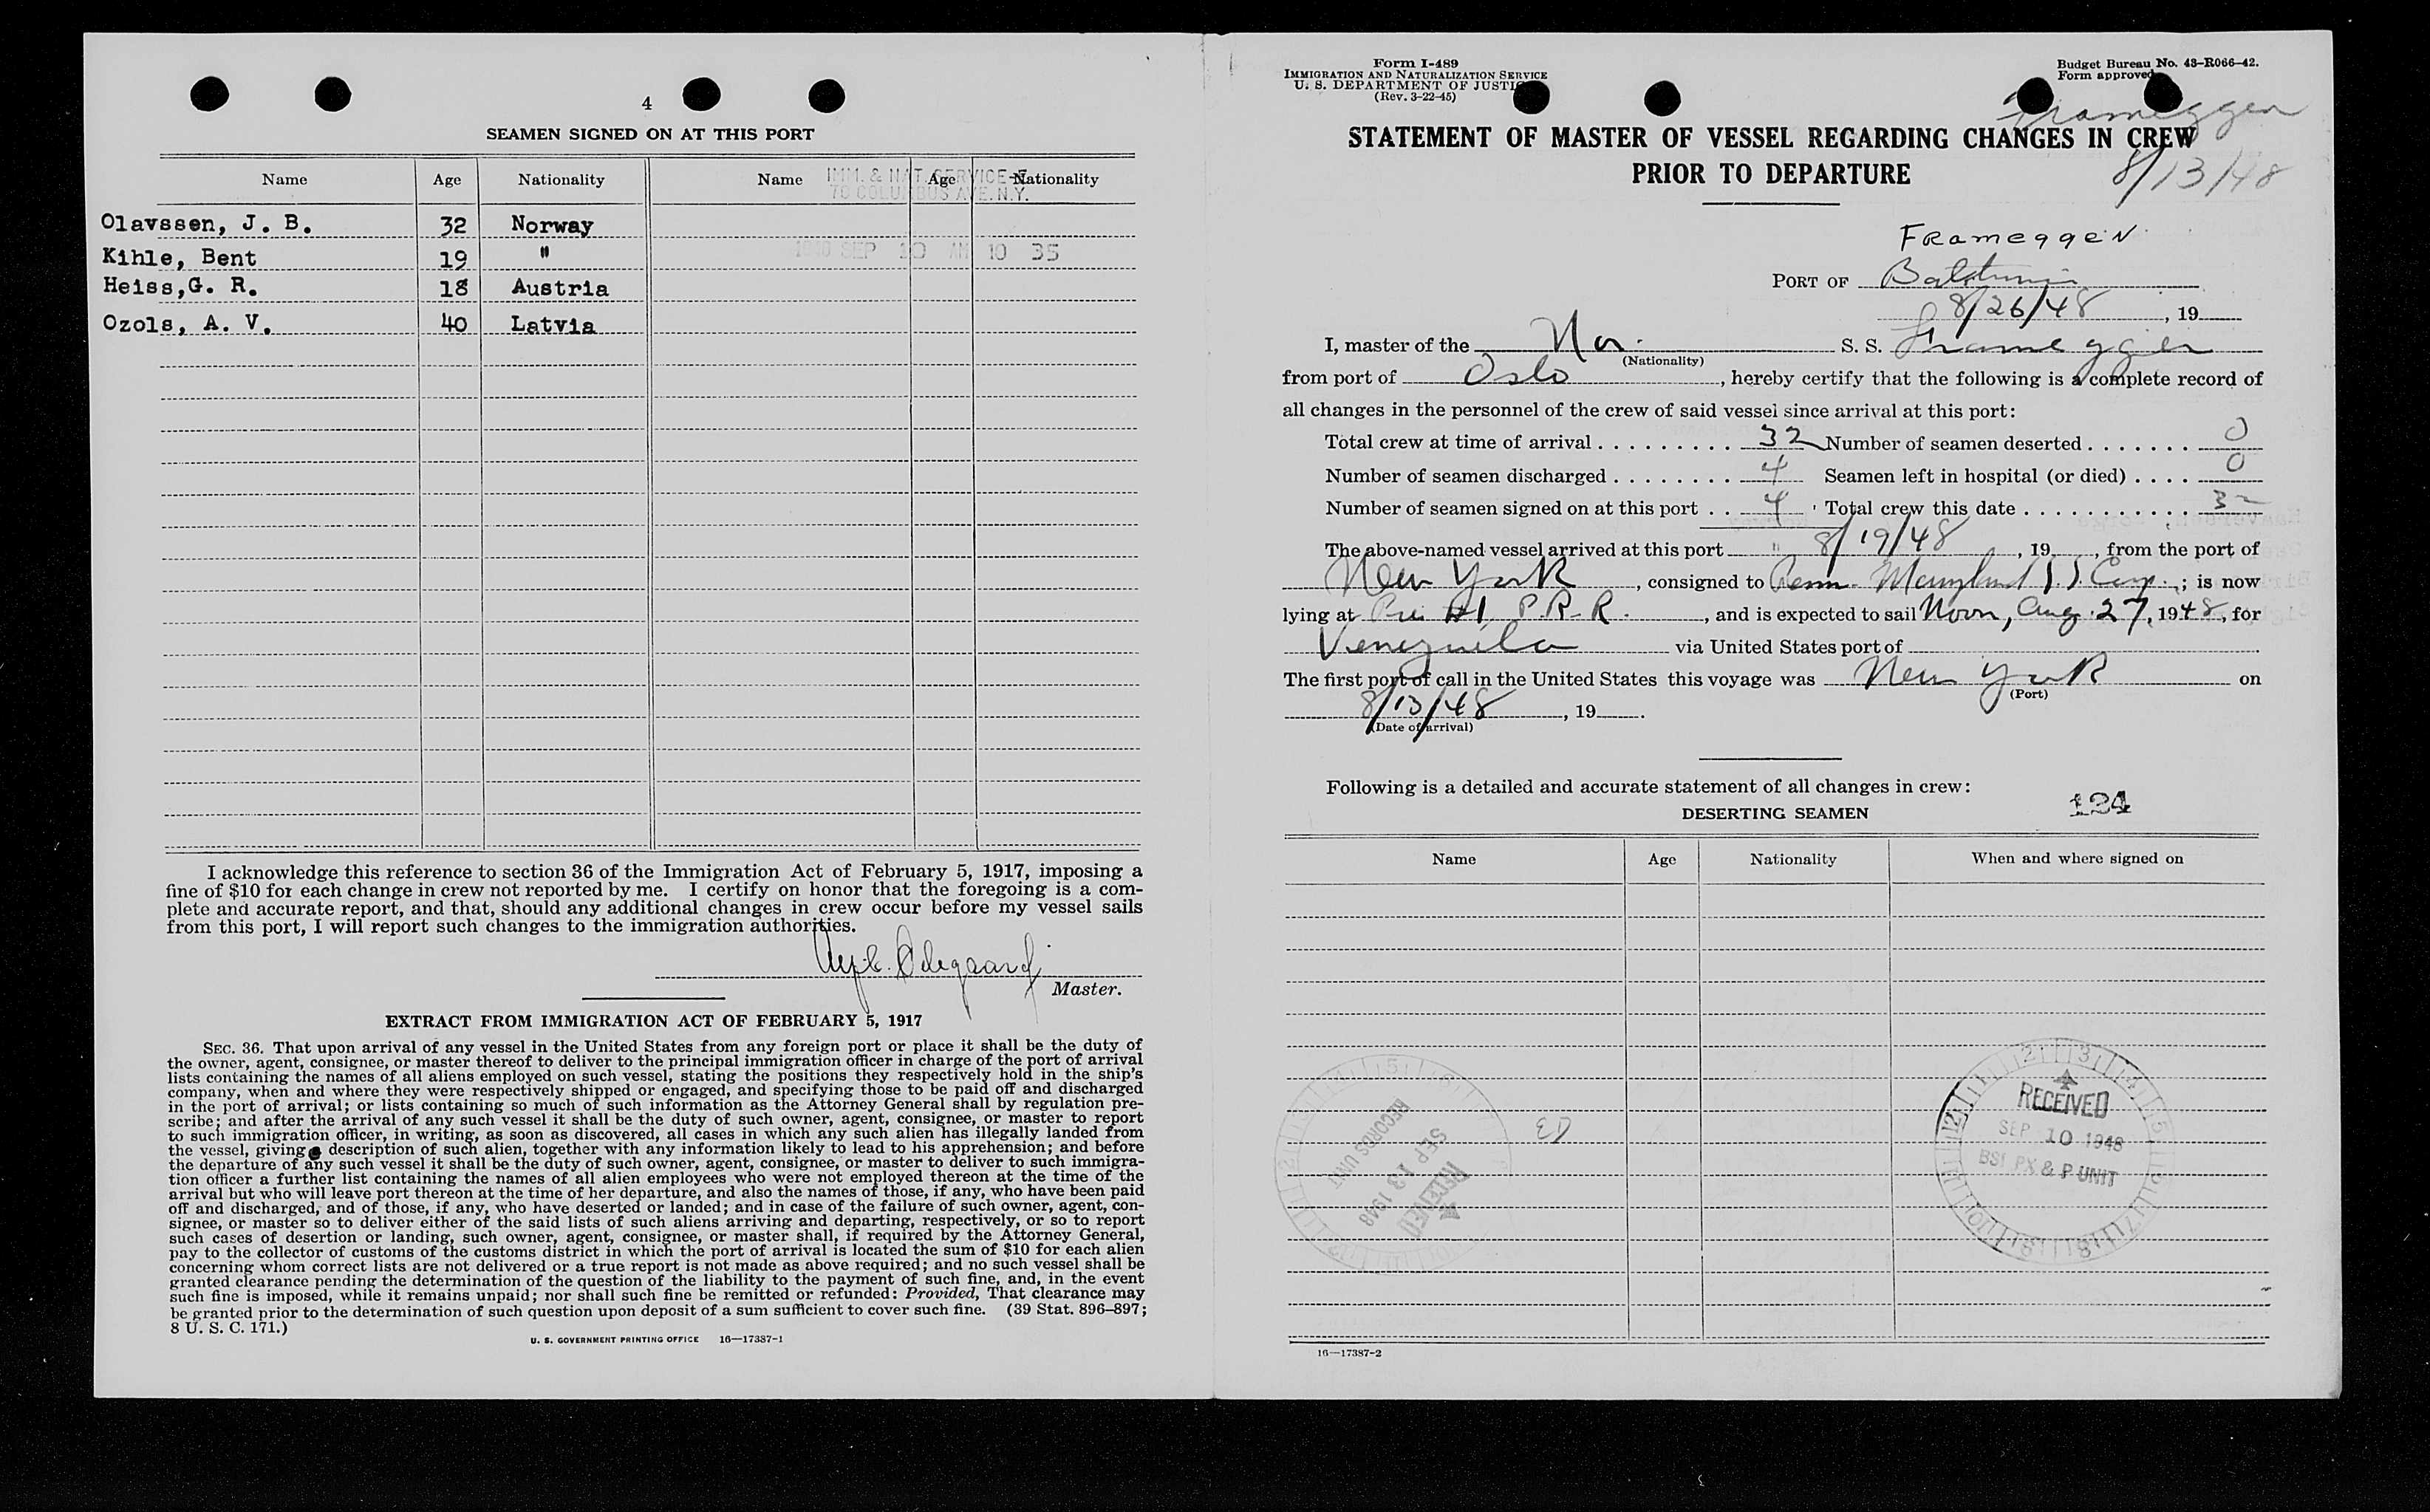 4
SEAMEN SIGNED ON AT THIS PORT
Name Age Nationality Name Age Nationality
IMM. & NAT. SERVICE
70 COLUMBUS AVE. N.Y.
Olavssen, J. B. 32 Norway
1948 SEP 10 AM 10 35
Kihle, Bent 19 "
Heiss,G. R. 18 Austria
Ozols, A. V. 40 Latvia
I acknowledge this reference to section 36 of the Immigration Act of February 5, 1917, imposing a
fine of $10 for each change in crew not reported by me. I certify on honor that the foregoing is a com-
plete and accurate report, and that, should any additional changes in crew occur before my vessel sails
from this port, I will report such changes to the immigration authorities.
Odegaard
Master.
EXTRACT FROM IMMIGRATION ACT OF FEBRUARY 5, 1917
SEC. 36. That upon arrival of any vessel in the United States from any foreign port or place it shall be the duty of
the owner, agent, consignee, or master thereof to deliver to the principal immigration officer in charge of the port of arrival
lists containing the names of all aliens employed on such vessel, stating the positions they respectively hold in the ship's
company, when and where they were respectively shipped or engaged, and specifying those to be paid off and discharged
in the port of arrival; or lists containing so much of such information as the Attorney General shall by regulation pre-
scribe; and after the arrival of any such vessel it shall be the duty of such owner, agent, consignee, or master to report
to such immigration officer, in writing, as soon as discovered, all cases in which any such alien has illegally landed from
the vessel, giving a description of such alien, together with any information likely to lead to his apprehension; and before
the departure of any such vessel it shall be the duty of such owner, agent, consignee, or master to deliver to such immigra-
tion officer a further list containing the names of all alien employees who were not employed thereon at the time of the
arrival but who will leave port thereon at the time of her departure, and also the names of those, if any, who have been paid
off and discharged, and of those, if any, who have deserted or landed; and in case of the failure of such owner, agent, con-
signee, or master so to deliver either of the said lists of such aliens arriving and departing, respectively, or so to report
such cases of desertion or landing, such owner, agent, consignee, or master shall, if required by the Attorney General,
pay to the collector of customs of the customs district in which the port of arrival is located the sum of $10 for each alien
concerning whom correct lists are not delivered or a true report is not made as above required; and no such vessel shall be
granted clearance pending the determination of the question of the liability to the payment of such fine, and, in the event
such fine is imposed, while it remains unpaid; nor shall such fine be remitted or refunded: Provided, That clearance may
be granted prior to the determination of such question upon deposit of a sum sufficient to cover such fine. (39 Stat. 896–897;
8 U. S. C. 171.)
U. S. GOVERNMENT PRINTING OFFICE 16—17387-1
Form I-489
IMMIGRATION AND NATURALIZATION SERVICE
U. S. DEPARTMENT OF JUSTICE
(Rev. 3-22-45)
Budget Bureau No. 43-R066-42.
Form approved
Frameggen
STATEMENT OF MASTER OF VESSEL REGARDING CHANGES IN CREW
PRIOR TO DEPARTURE
8/13/48
FRameggeN
PORT OF Baltimore
8/26/48, 19
I, master of the Nor. S. S. Frameggen
(Nationality)
from port of Oslo, hereby certify that the following is a complete record of
all changes in the personnel of the crew of said vessel since arrival at this port:
Total crew at time of arrival 32 Number of seamen deserted 0
Number of seamen discharged 4 Seamen left in hospital (or died) 0
Number of seamen signed on at this port 4 Total crew this date 32
The above-named vessel arrived at this port 8/19/48, 19, from the port of
New York, consigned to Penn. Maryland S.S. Corp.; is now
lying at Pier #1, P.R.R., and is expected to sail Noon, Aug. 27, 1948, for
Venezuela via United States port of
The first port of call in the United States this voyage was New York on
(Port)
8/13/48, 19.
(Date of arrival)
Following is a detailed and accurate statement of all changes in crew:
124
DESERTING SEAMEN
Name Age Nationality When and where signed on
RECEIVED
SEP 10 1948
BSI PX & P UNIT
RECEIVED
SEP 13 1948
RECORDS UNIT
ED
16—17387-2